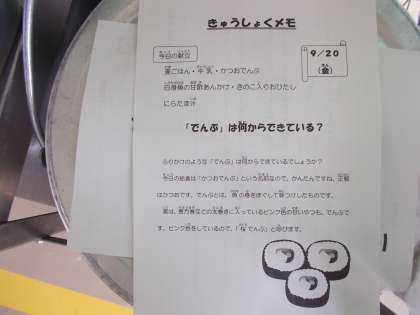 きゅうしょくメモ
9/20
(金)
今日の献立
麦ごはん・牛乳・かつおでんぶ
白身魚の甘酢あんかけ・きのこ入りおひたし
にらたま汁
「でんぶ」は何からできている？
ふりかけのような「でんぶ」は何からできているでしょうか？
今日の給食は「かつおでんぶ」という名前なので、かんたんですね。正解
はかつおです。でんぶとは、魚の身をほぐして味つけしたものです。
実は、恵方巻などの太巻きに入っているピンク色の甘いやつも、でんぶで
す。ピンク色をしているので、「桜でんぶ」と呼びます。